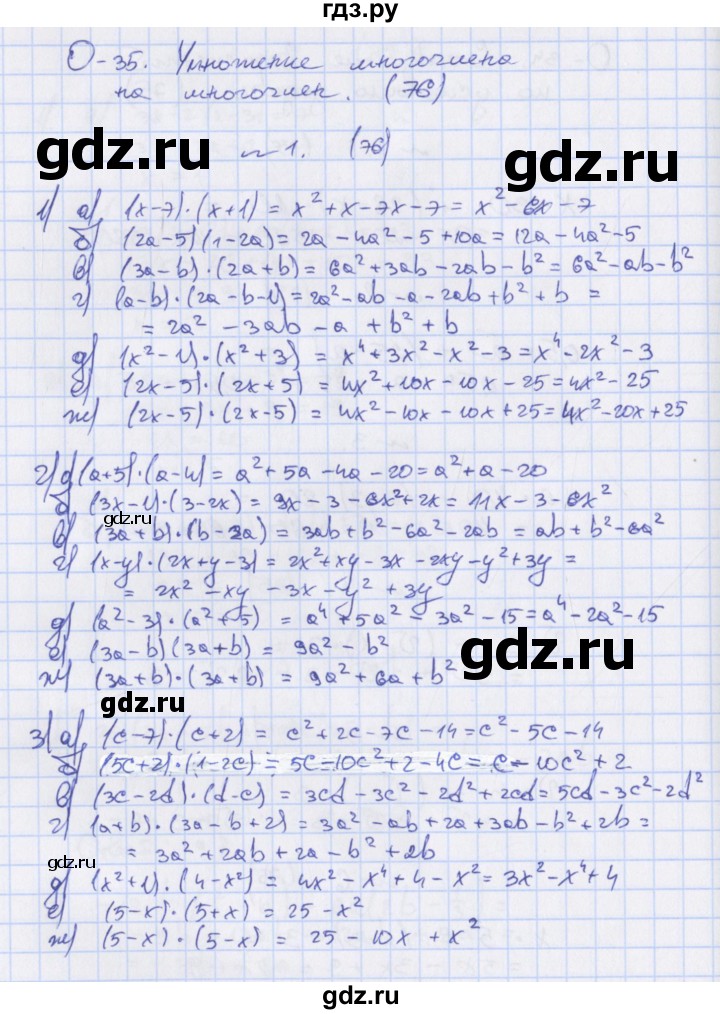 гдз.ру
О-35. Умножение многочлена
на многочлен. (76)
gdz.ru gdz.ru
№ 1. (76)
1) а) (x-7)·(x+1) = x²+x-7x-7 = x²-6x-7
б) (2a-5)(1-2a) = 2a-4a²-5+10a = 12a-4a²-5
в) (3a-b)·(2a+b) = 6a²+3ab-2ab-b² = 6a²-ab-b²
г) (a-b)·(2a-b-1) = 2a²-ab-a-2ab+b²+b =
= 2a²-3ab-a+b²+b
д) (x²-1)·(x²+3) = x⁴+3x²-x²-3 = x⁴-2x²-3
е) (2x-5)·(2x+5) = 4x²+10x-10x-25 = 4x²-25
ж) (2x-5)·(2x-5) = 4x²-10x-10x+25 = 4x²-20x+25
2) а) (a+5)·(a-4) = a²+5a-4a-20 = a²+a-20
б) (3x-1)·(3-2x) = 9x-3-6x²+2x = 11x-3-6x²
gdz.ru
в) (3a+b)·(b-2a) = 3ab+b²-6a²-2ab = ab+b²-6a²
г) (x-y)·(2x+y-3) = 2x²+xy-3x-2xy-y²+3y =
= 2x²-xy-3x-y²+3y
д) (a²-3)·(a²+5) = a⁴+5a²-3a²-15 = a⁴-2a²-15
е) (3a-b)(3a+b) = 9a²-b²
gdz.ru
ж) (3a+b)·(3a+b) = 9a²+6a+b²
gdz.ru
3) а) (c-7)·(c+2) = c²+2c-7c-14 = c²-5c-14
б) (5c+2)·(1-2c) = 5c-10c²+2-4c = c-10c²+2
в) (3c-2d)·(d-c) = 3cd-3c²-2d²+2cd = 5cd-3c²-2d²
г) (a+b)·(3a-b+2) = 3a²-ab+2a+3ab-b²+2b =
= 3a²+2ab+2a-b²+2b
gdz.ru
д) (x²+1)·(4-x²) = 4x²-x⁴+4-x² = 3x²-x⁴+4
е) (5-x)·(5+x) = 25-x²
ж) (5-x)·(5-x) = 25-10x+x²
gdz.ru
gdz.ru